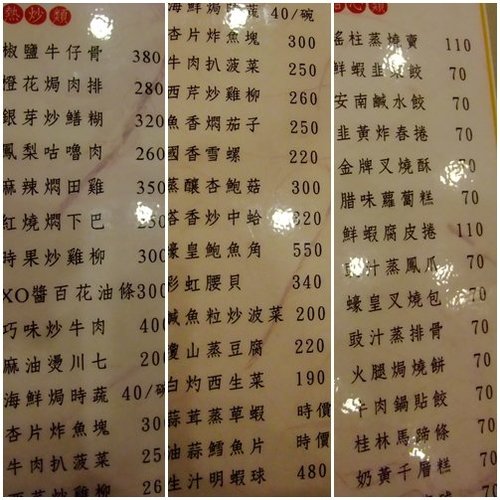 熱炒類
椒鹽牛仔骨 380
燈花焗肉排 280
銀芽炒鱔糊 320
鳳梨咕嚕肉 260
麻辣燜田雞 350
紅燒燜下巴 250
時果炒雞柳 300
XO醬百花油條 300
巧味炒牛肉 400
麻油燙川七 200
海鮮焗時蔬 40/碗
杏片炸魚塊 300
牛肉扒菠菜 25
西芹炒雞柳 26
海鮮焗時蔬 40/碗
杏片炸魚塊 300
牛肉扒菠菜 250
西芹炒雞柳 260
魚香燜茄子 250
國香雪螺 220
蒸釀杏鮑菇 300
塔香炒中蛤 320
蠔皇鮑魚角 550
彩虹腰貝 340
鹹魚粒炒波菜 200
瓊山蒸豆腐 220
白灼西生菜 190
蒜茸蒸草蝦 時價
油蒜鱈魚片 時價
生汁明蝦球 480
點心類
瑤柱蒸燒賣 110
鮮蝦韭菜餃 70
安南鹹水餃 70
韭黃炸春捲 70
金牌叉燒酥 70
腊味蘿蔔糕 70
鮮蝦腐皮捲 110
豉汁蒸鳳爪 70
蠔皇叉燒包 70
豉汁蒸排骨 70
火腿焗燒餅 70
牛肉鍋貼餃 70
桂林馬蹄條 70
奶黃千層糕 70